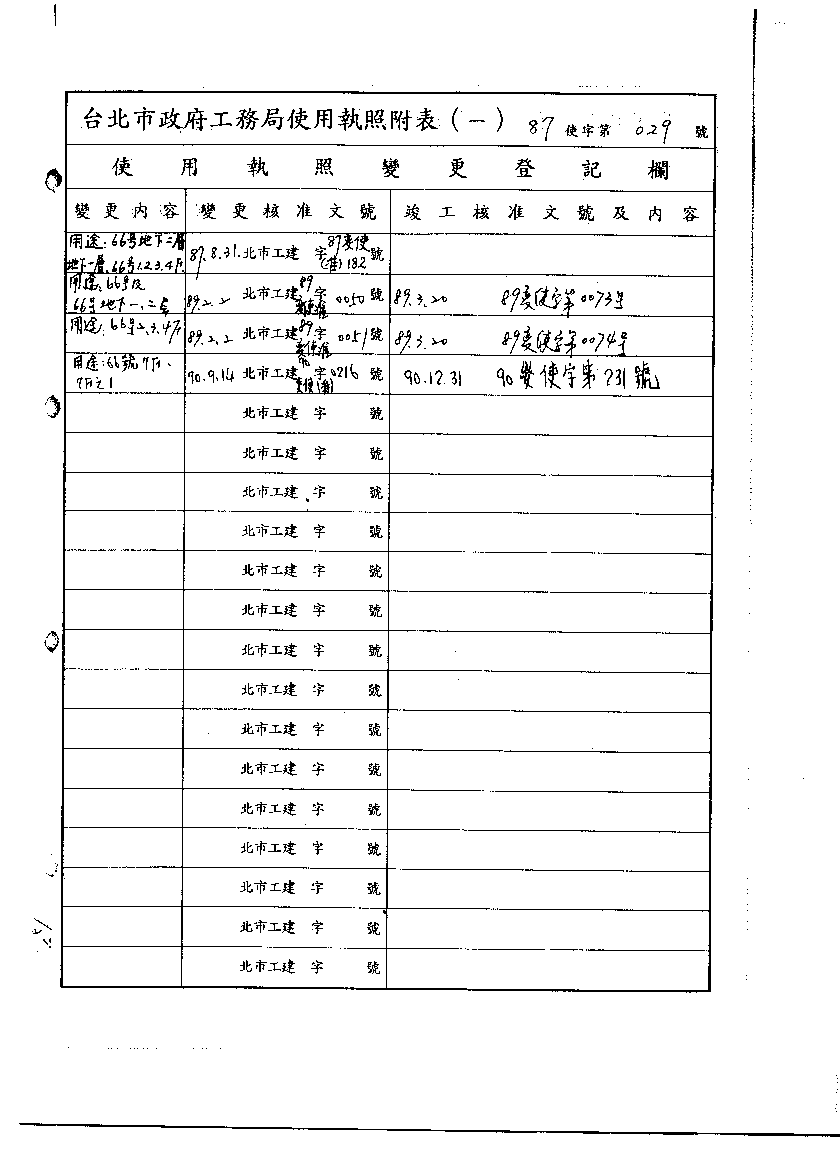 台北市政府工務局使用執照附表(一) 87 使字第 029 號
使用執照變更登記欄
變更內容 變更核准文號 竣工核准文號及內容
用途:66号地下二層
地下一層,66号1.2.3.4F. 87.8.31.北市工建 字 87變使(准)182 號
用途:66号及
66号地下一、二层 89.2.2 北市工建 89 字 變使准 0050 號 89.3.20 89變使字第0073号
用途:66号2.3.4F 89.2.2 北市工建 89 字 變使准 0051 號 89.3.20 89變使字第0074号
用途:66號7F、
7F之1 90.9.14 北市工建 90 字 變使(准) 0216 號 90.12.31 90變使字第231號
北市工建 字 號
北市工建 字 號
北市工建 字 號
北市工建 字 號
北市工建 字 號
北市工建 字 號
北市工建 字 號
北市工建 字 號
北市工建 字 號
北市工建 字 號
北市工建 字 號
北市工建 字 號
北市工建 字 號
北市工建 字 號
北市工建 字 號